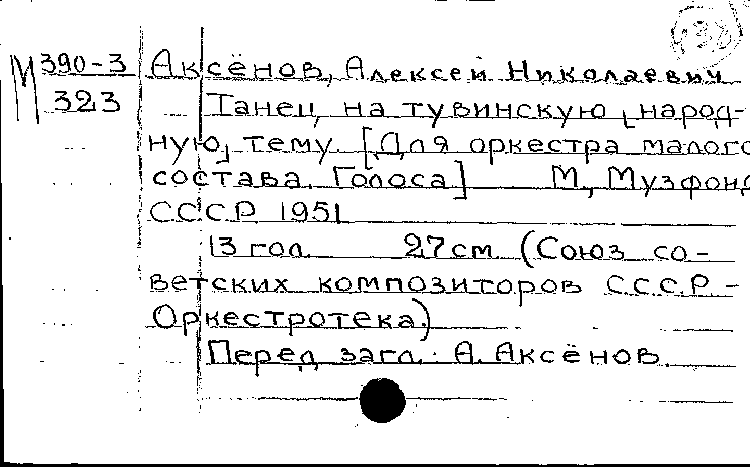 М 390-3
323
Аксёнов, Алексей Николаевич
Танец на тувинскую [народ-
ную] тему. [Для оркестра малого
состава. Голоса] М., Музфонд
СССР 1951
13 гол. 27 см. (Союз со-
ветских композиторов С.С.С.Р. -
Оркестротека.)
Перед загл.: А. Аксёнов.